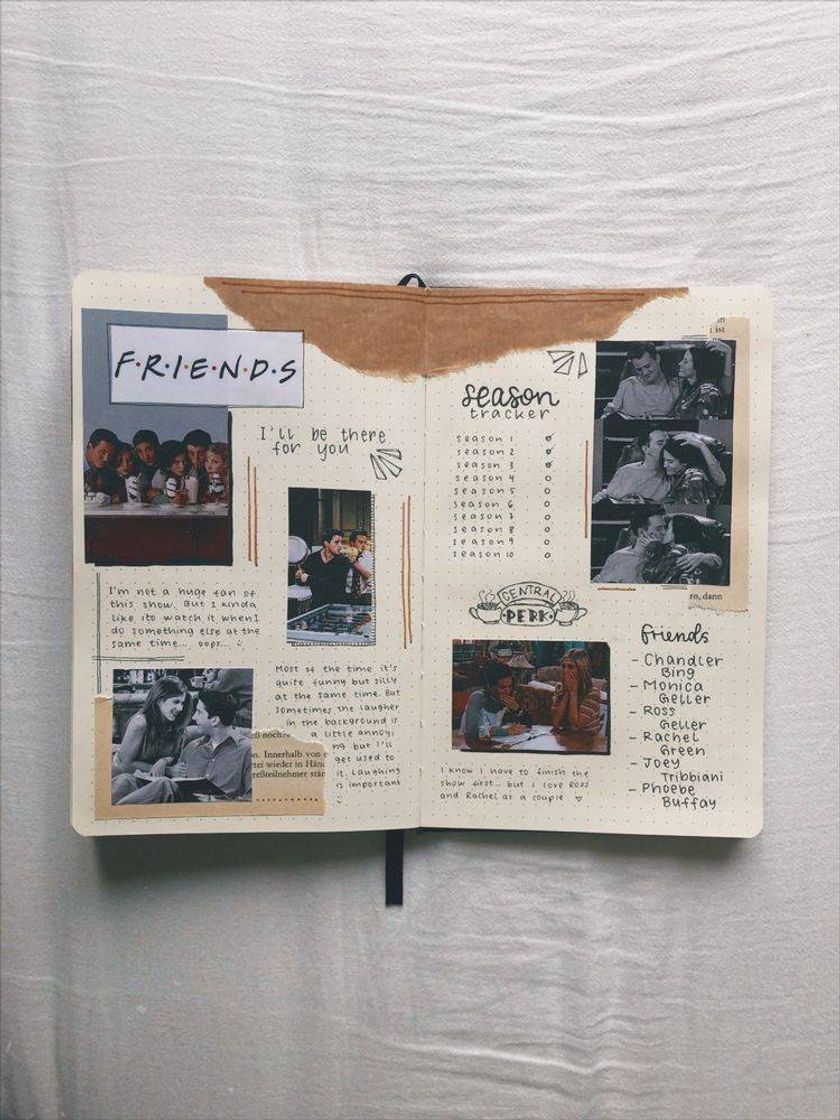 F·R·I·E·N·D·S
I'll be there
for you
I'm not a huge fan of
this show. But I kinda
like ito watch it when I
do something else at the
same time... oops...
Most of the time it's
quite funny but silly
at the same time. But
sometimes the laugher
in the background is
a little annoyi
ng but I'll
get used to
it. Laughing
is important
n. Innerhalb von
tei wieder in Hän
zeßteilnehmer stär
season
tracker
season 1
season 2
season 3
season 4
season 5
season 6
season 7
season 8
season 9
season 10
CENTRAL
PERK
I know I have to finish the
show first... but I love Ross
and Rachel as a couple
in
ist
en, dann
friends
- Chandler
Bing
- Monica
Geller
- Ross
Geller
- Rachel
Green
- Joey
Tribbiani
- Phoebe
Buffay